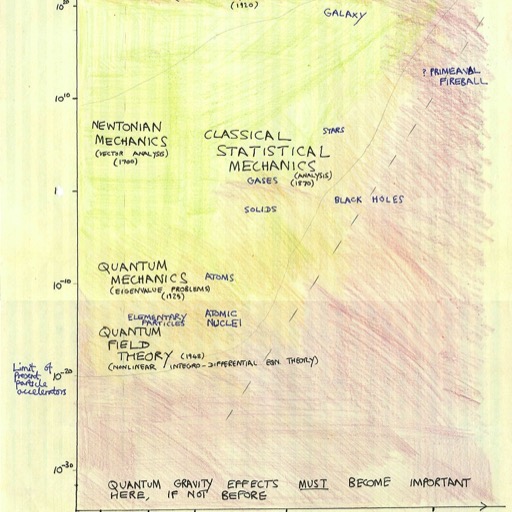 10²⁰
(1920)
GALAXY
? PRIMEAVAL
FIREBALL
10¹⁰
NEWTONIAN
MECHANICS
(VECTOR ANALYSIS)
(1700)
CLASCICAL
STATISTICAL
MECHANICS
(ANALYSIS)
(1870)
STARS
GASES
1
SOLIDS
BLACK HOLES
QUANTUM
MECHANICS
(EIGENVALUE PROBLEMS)
(1925)
ATOMS
10⁻¹⁰
ELEMENTARY
PARTICLES
ATOMIC
NUCLEI
QUANTUM
FIELD
THEORY (1948)
(NONLINEAR INTEGRO-DIFFERENTIAL EQN. THEORY)
Limit of
Present
particle
accelerators
10⁻²⁰
10⁻³⁰
QUANTUM GRAVITY EFFECTS MUST BECOME IMPORTANT
HERE, IF NOT BEFORE